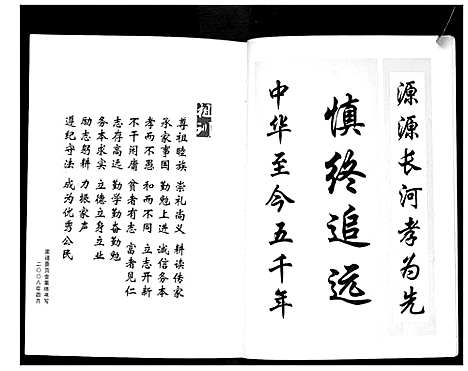 源源长河孝为先
慎终追远
中华至今五千年
祖训
尊祖睦族 崇礼尚义 耕读传家
承家事国 勤勉上进 诚信务本
孝而不忍 和而不同 立志开新
不干闲庸 贫者有志 富者见仁
志存高远 勤学勤奋勤勉
务本求实 立德立身立业
励志躬耕 力振家声
遵纪守法 成为优秀公民
宗谱委员会集体书写
二〇〇八年四月